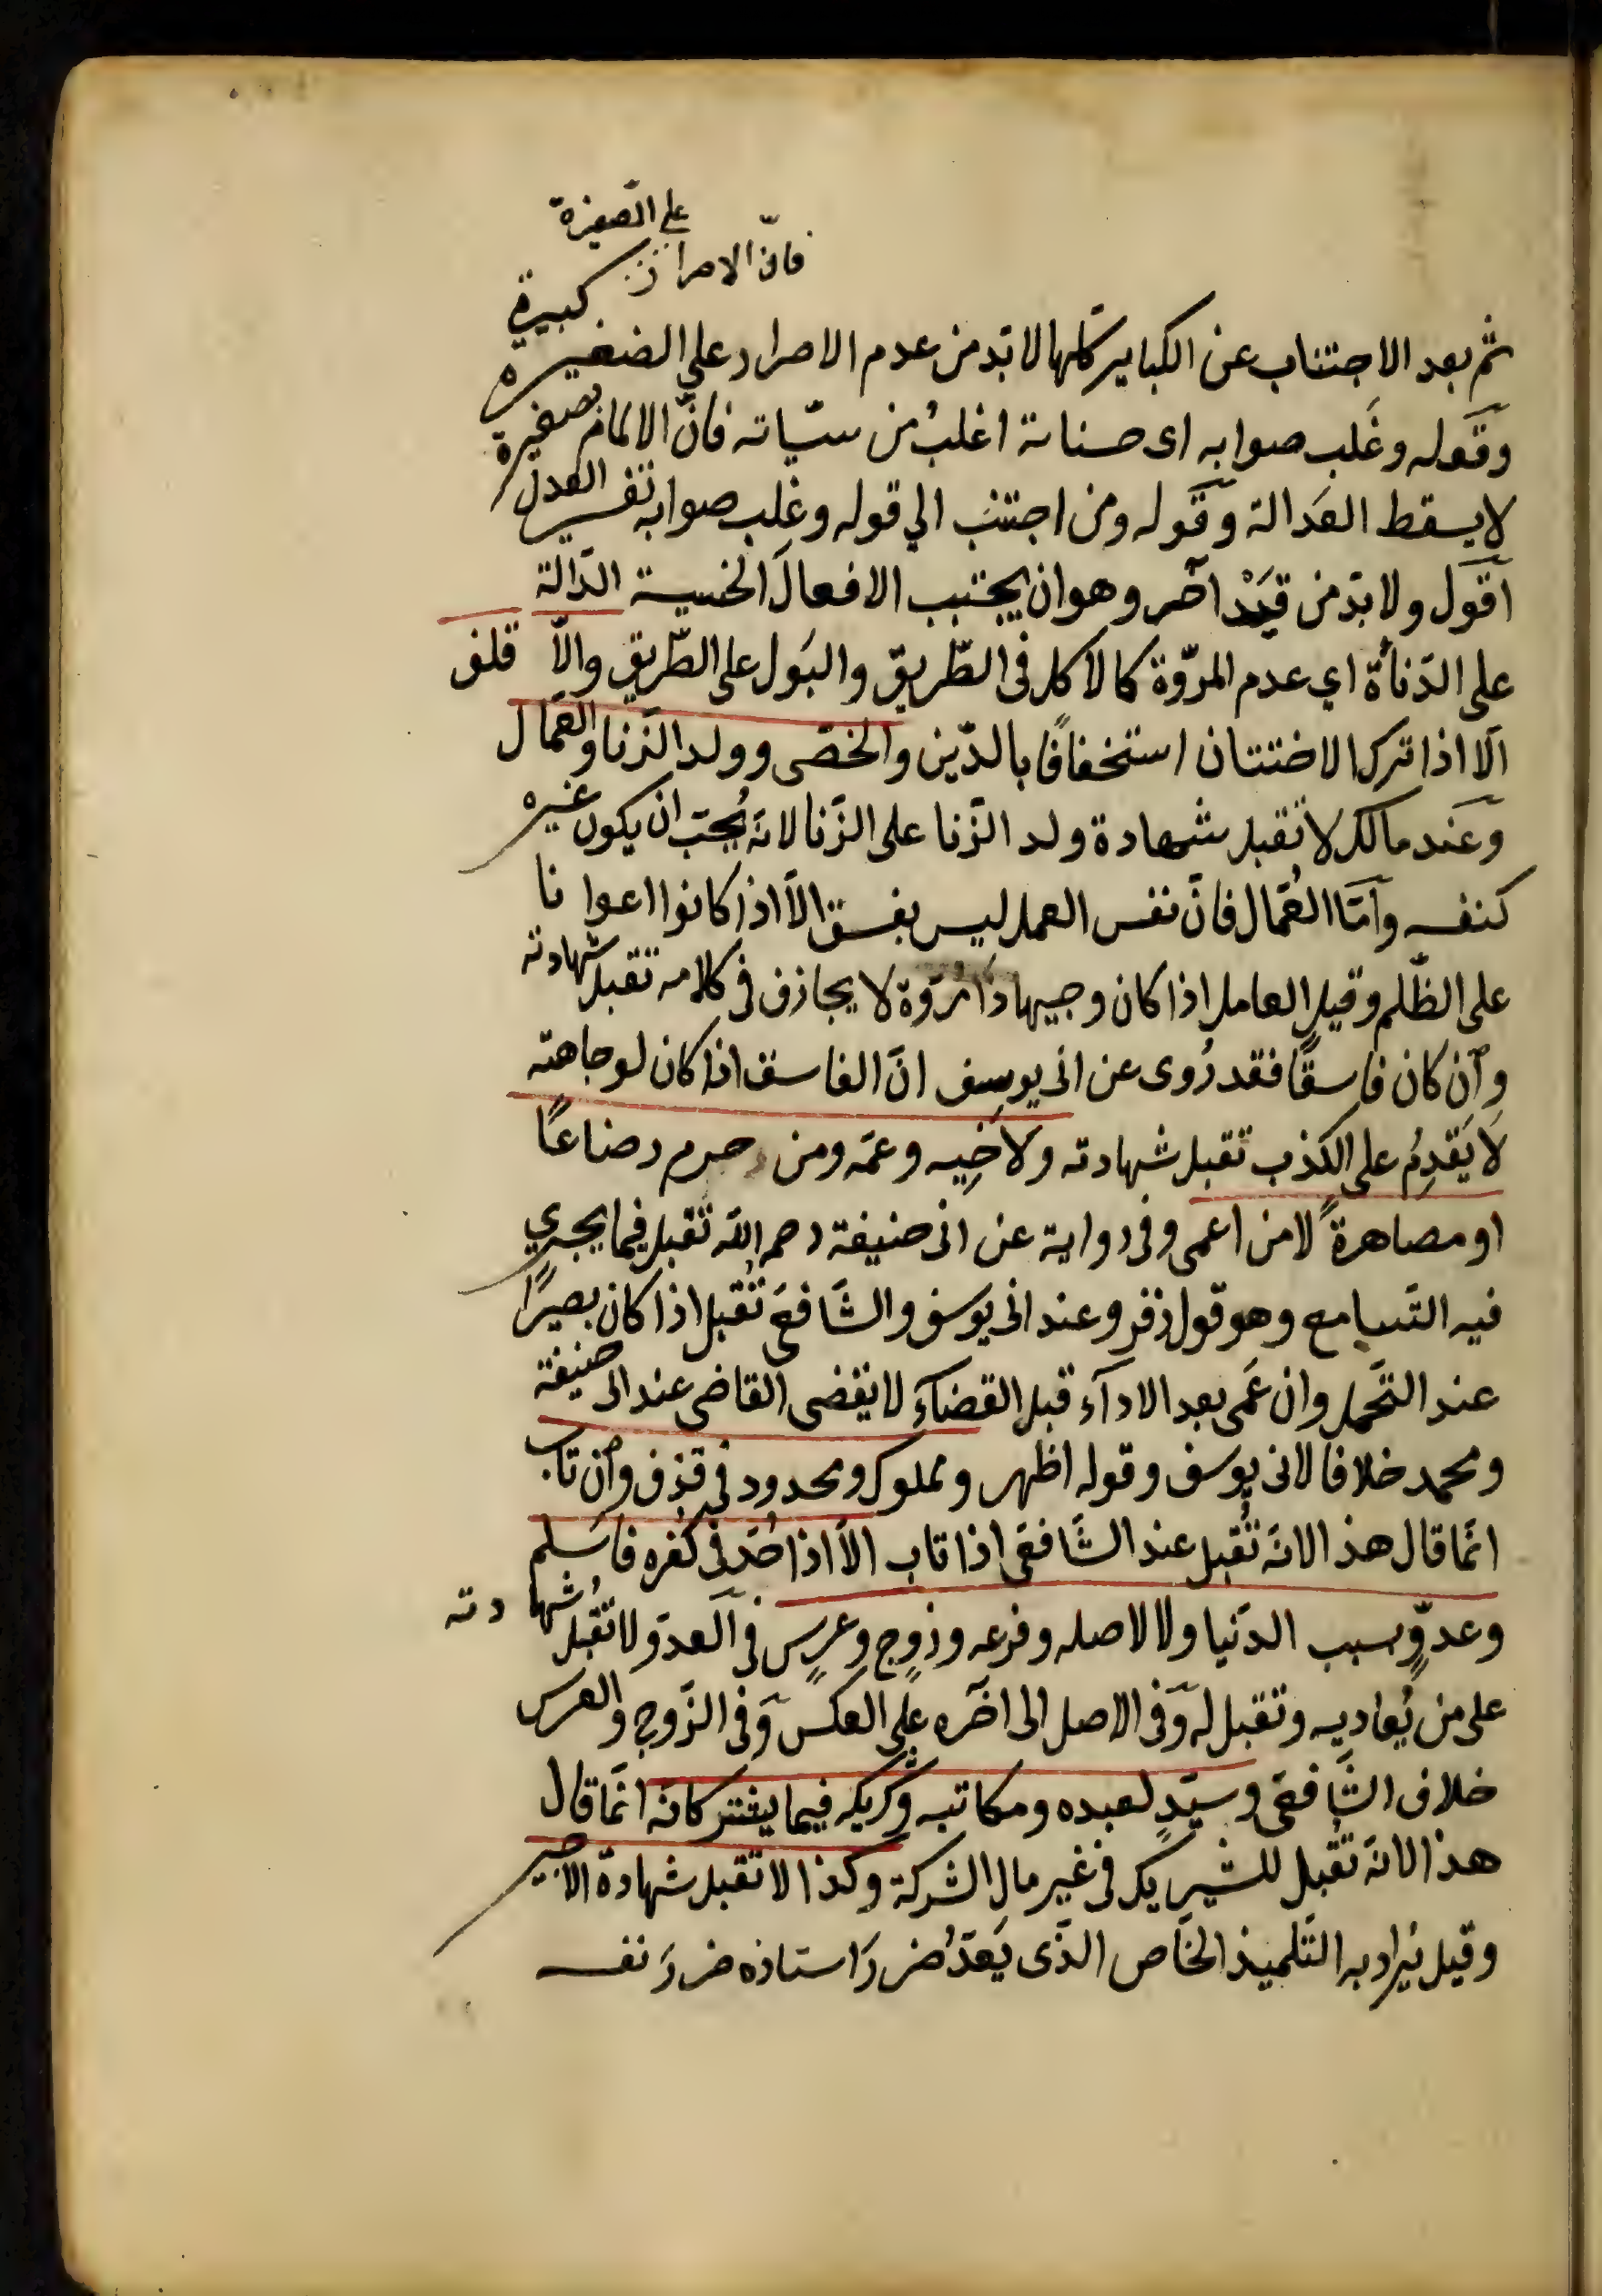 على الصغيرة
فانّ الاصرار
كبيرة
ثم بعد الاجتناب عن الكباير كلّها لا بدّ من عدم الاصرار على الصغيرة
وقوله وغَلب صوابه اى حسناته اغلبُ من سيّاته فانّ الالمام بصغيرة
لا يسقط العدالة وقوله ومن اجتنب الي قوله وغلب صوابه تفسير العدل
اقول ولا بدّ من قَيْد آخر وهو ان يجتنب الافعال الخسيسة الدّالة
على الدّنأة اي عدم المروّة كالاكل فى الطّريق والبَول على الطّريق والاّ قلف
الّا اذا ترك الاختتان استخفافًا بالدّين والخصّى وولد الزّنا والعمّال
وعند مالك لا تقبل شهادة ولد الزّنا على الزّنا لانّه يُحبّ ان يكون غيره
كنفسه وامّا العُمّال فانّ نفس العمل ليس بفسق الاّ اذا كانوا اعوانا
على الظّلم وقيل العامل اذا كان وجيها ذا مروّة لا يجازف فى كلامه تقبل شهادته
وان كان فاسقًا فقد رُوى عن ابى يوسف انّ الفاسق اذا كان لوجاهته
لا يَقدِمُ على الكذب تقبل شهادته ولاخِيه وعمّه ومن حرم رضاعًا
او مصاهرةً لا من اعمى وفى رواية عن ابى حنيفة رحمه الله تقبل فيما يجري
فيه التّسامع وهو قول زفر وعند ابى يوسف والشّافعىّ تُقبل اذا كان بصيرًا
عند التّحمل وان عَمى بعد الادآء قبل القضآء لا يقضى القاضى عند ابى حنيفة
ومحمد خلافا لابى يوسف وقوله اظهر ومملوك ومحدود فى قذف وان تاب
انّما قال هذا لانّه تُقبل عند الشّافعىّ اذا تاب الاّ اذا حُدّ فى كفره فاسلم
وعدوٍّ بسبب الدّنيا ولا لاصله وفرعه وزوج وعرس فى العدوّ لا تقبل شهادته
على من يُعاديه وتقبل له وفى الاصل الى آخره على العكس وفى الزّوج والعرس
خلاف الشّافعىّ وسيّدٍ لعبده ومكاتبه وشريكه فيما يشتركانه انّما قال
هذا لانّه تقبل للشريك فى غير مال الشركة وكذا لا تقبل شهادة الاجير
وقيل يُراد به التّلميذ الخاص الذّى يَعدّ ضررَ استاذه ضررَ نفسه